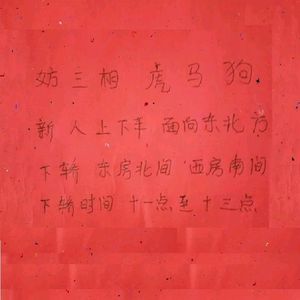 妨三相 虎马狗
新人上下车 面向东北方
下轿 东房北间 西房南间
下轿时间 十一点至十三点